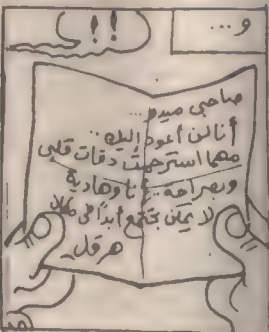 و...
!!
صاحبى ميدو..
أنا لن أعود إليك..
مهما استرحمت دقات قلبى
وبصراحة.. أنا وهادية
لا يمكن نجتمع أبدًا فى مكان
هرقل